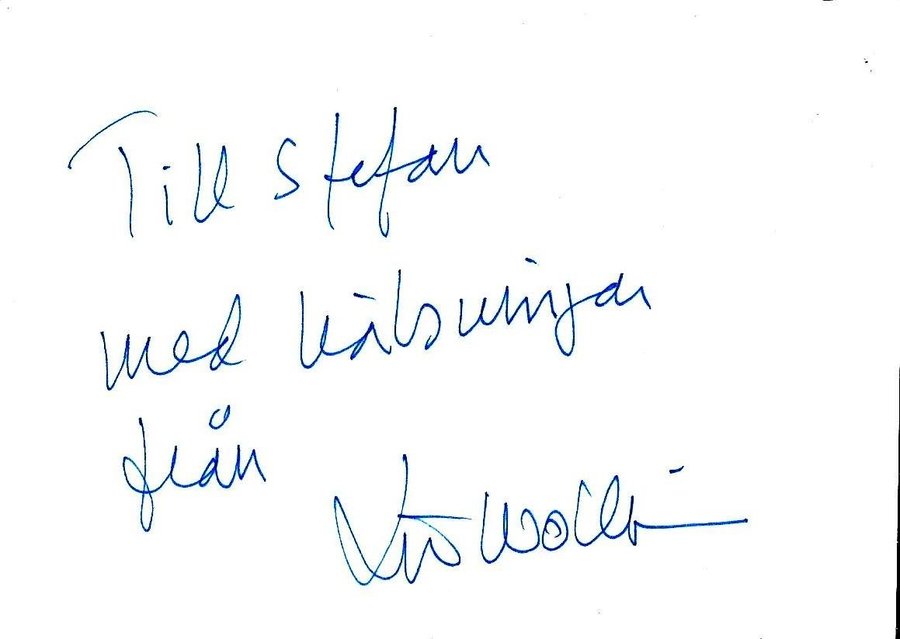 Till Stefan
med hälsningar
från